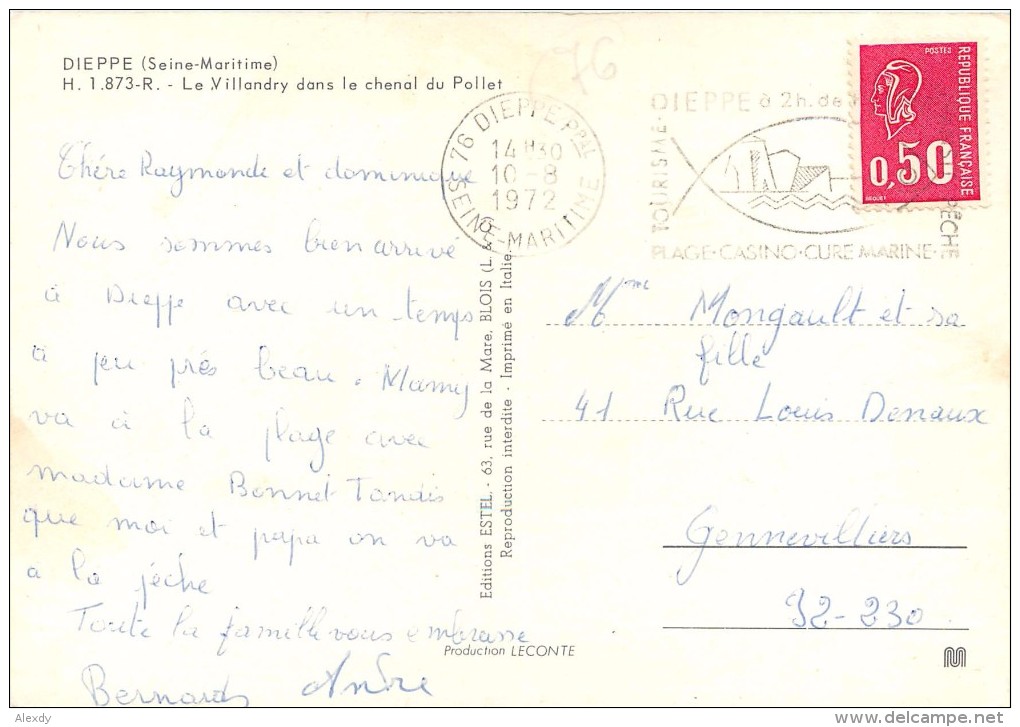 DIEPPE (Seine-Maritime)
H. 1.873-R. - Le Villandry dans le chenal du Pollet
76
76 DIEPPE PPAL
14 H30
10-8
1972
SEINE-MARITIME
DIEPPE à 2h. de
TOURISME
PÊCHE
PLAGE·CASINO·CURE MARINE·
POSTES
REPUBLIQUE FRANÇAISE
0,50
BEQUET
Chére Raymonde et dominique
Nous sommes bien arrivé
à Dieppe avec un temps
à peu prés beau. Mamy
va à la plage avec
madame Bonnet Tandis
que moi et papa on va
a la pêche
Toute la famille vous embrasse
Bernard André
Editions ESTEL - 63, rue de la Mare, BLOIS (L. &
Reproduction interdite - Imprimé en Italie
Production LECONTE
Mme Mongault et sa
fille
41 Rue Louis Denaux
Gennevilliers
92-230
M
Alexdy
www.delcampe.net